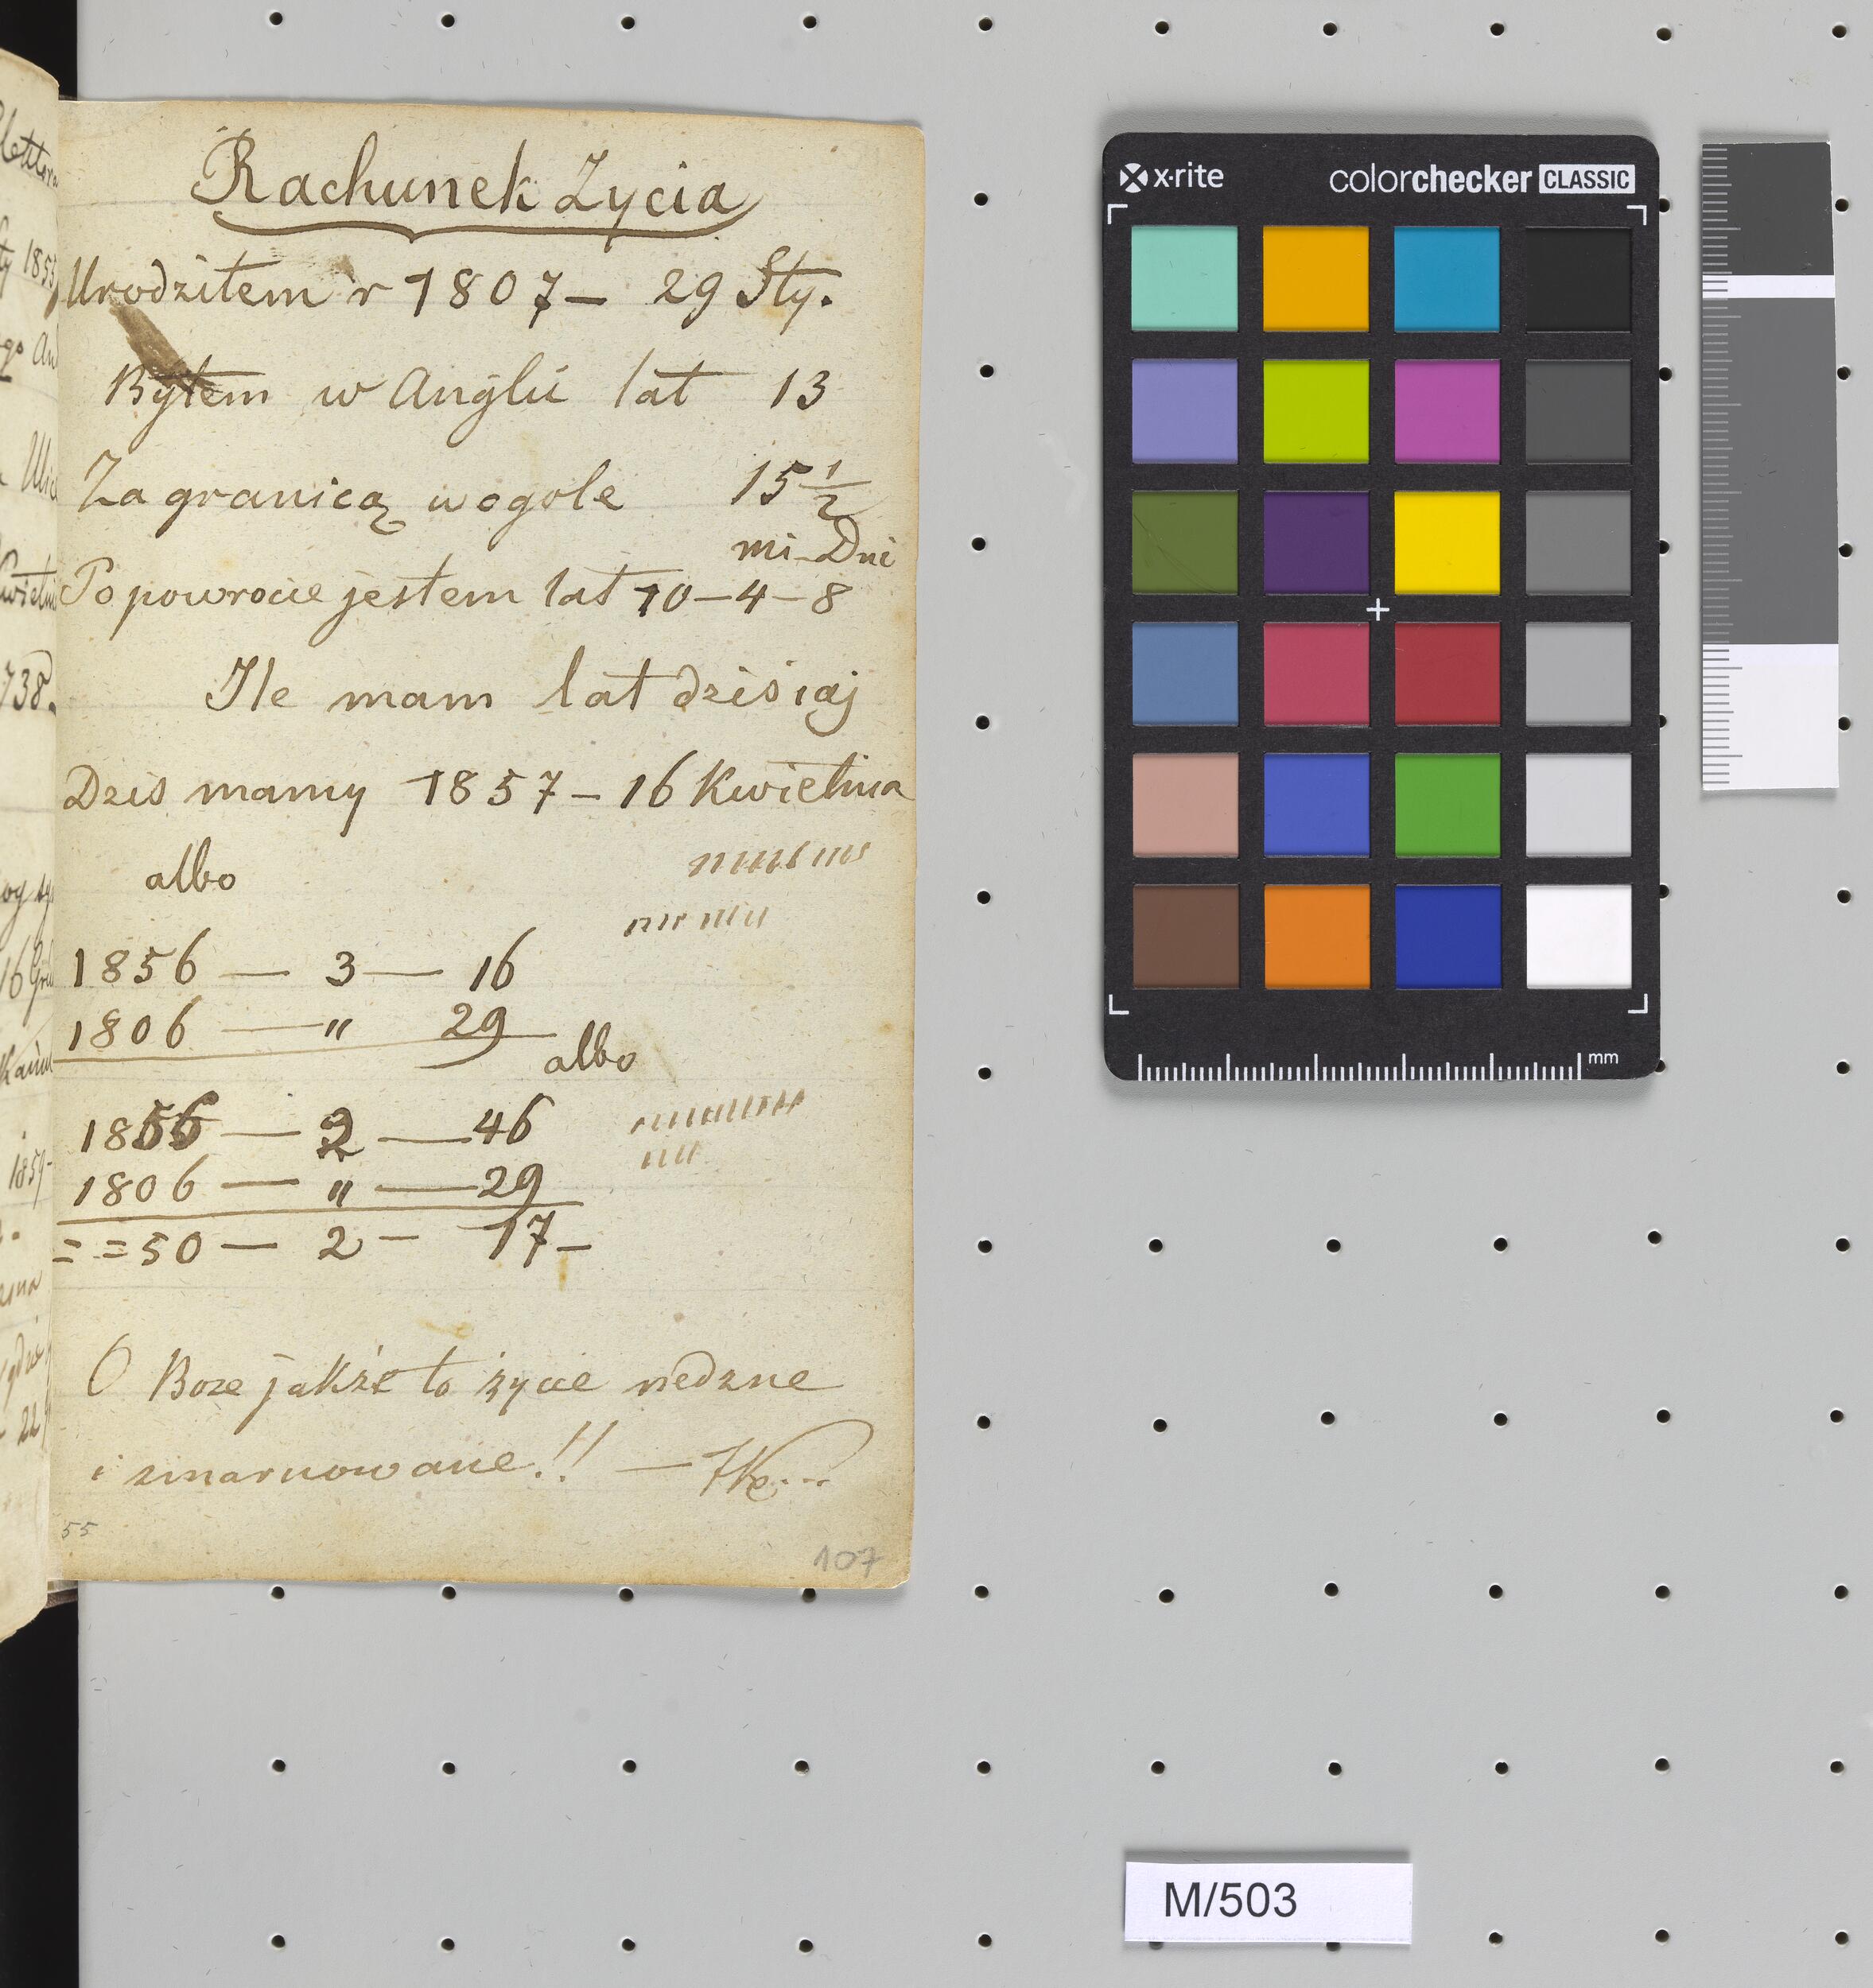 Rachunek Zycia
Urodziłem r 1807 — 29 Sty.
Byłem w Anglii lat 13
Za granicą wogole 15 1/2
mi — Dni
Po powrocie jestem lat 10 — 4 — 8
Ile mam lat dzisiaj
Dzis mamy 1857 — 16 Kwietnia
albo
1856 — 3 — 16
1806 — " 29
albo
1856 — 2 — 46
1806 — " — 29
= = 50 — 2 — 17 —
O Boze jakże to życie nedzne
i zmarnowane!! —
55
107
x·rite
colorchecker CLASSIC
mm
M/503